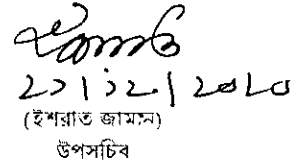 ২১|১২|২০২০
(ইশরাত জামান)
উপসচিব